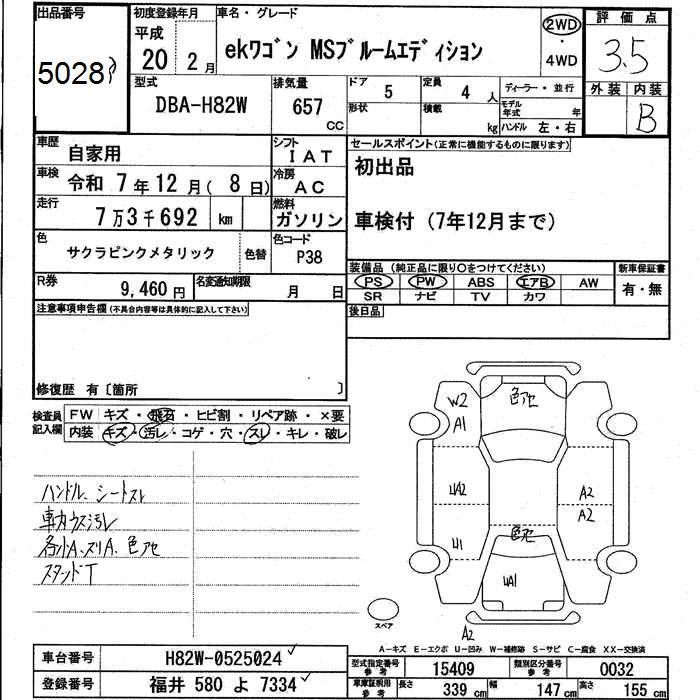 出品番号
5028
初度登録年月
平成
20 2月
車名・グレード
ekワゴン MSブルームエディション
2WD
・
4WD
評価点
3.5
外装 内装
B
型式
DBA-H82W
排気量
657
CC
ドア
5
定員
4 人
形状
積載
kg
ディーラー・並行
モデル
年式 年
ハンドル 左・右
車歴
自家用
シフト
IAT
車検
令和 7年12月(8日)
冷房
AC
走行
7万3千692 km
燃料
ガソリン
色
サクラピンクメタリック
色替
色コード
P38
R券
9,460円
名変通知期限
月 日
セールスポイント(正常に機能するものに限ります)
初出品
車検付(7年12月まで)
装備品(純正品に限り○をつけてください)
PS PW ABS エアB AW
SR ナビ TV カワ
新車保証書
有・無
後日品
注意事項申告欄(不具合内容等は具体的に記入して下さい)
修復歴 有〔箇所 〕
検査員
記入欄
FW キズ・飛石・ヒビ割・リペア跡・×要
内装 キズ・汚レ・コゲ・穴・スレ・キレ・破レ
ハンドル、シートスレ
車カウス汚レ
各小A、スリA、色アセ
スタンドT
W2
A1
色アセ
UA2
A2
A2
U1
色アセ
UA1
A2
スペア
A-キズ E-エクボ U-凹み W-補修跡 S-サビ C-腐食 XX-交換済
車台番号
H82W-0525024
登録番号
福井 580 よ 7334
型式指定番号
参考
15409
類別区分番号
参考
0032
車庫証明用
参考
長さ 339 cm
幅 147 cm
高さ 155 cm